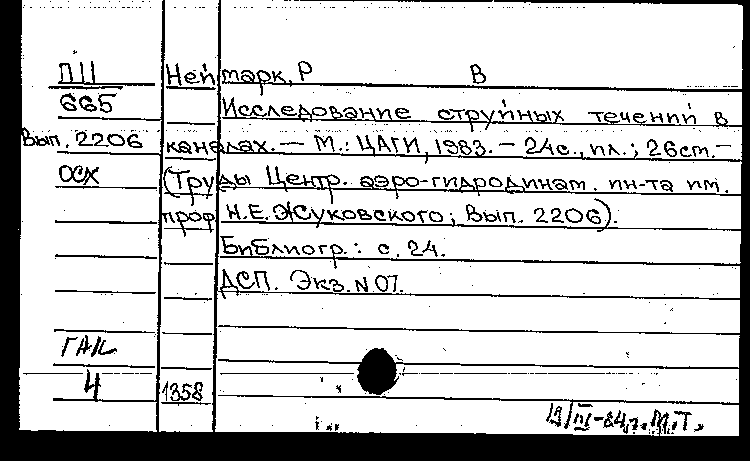 П11 Нейтмарк, Р В
665 Исследование струйных течений в
Вып. 2206 каналах. — М.: ЦАГИ, 1983. — 24с., ил.; 26см. —
ОСХ (Труды Центр. аэро-гидродинам. ин-та им.
проф Н.Е. Жуковского; Вып. 2206).
Библиогр.: с. 24.
ДСП. Экз. N 07.
ГАК
4 1358
19/III-84г. М.Т.